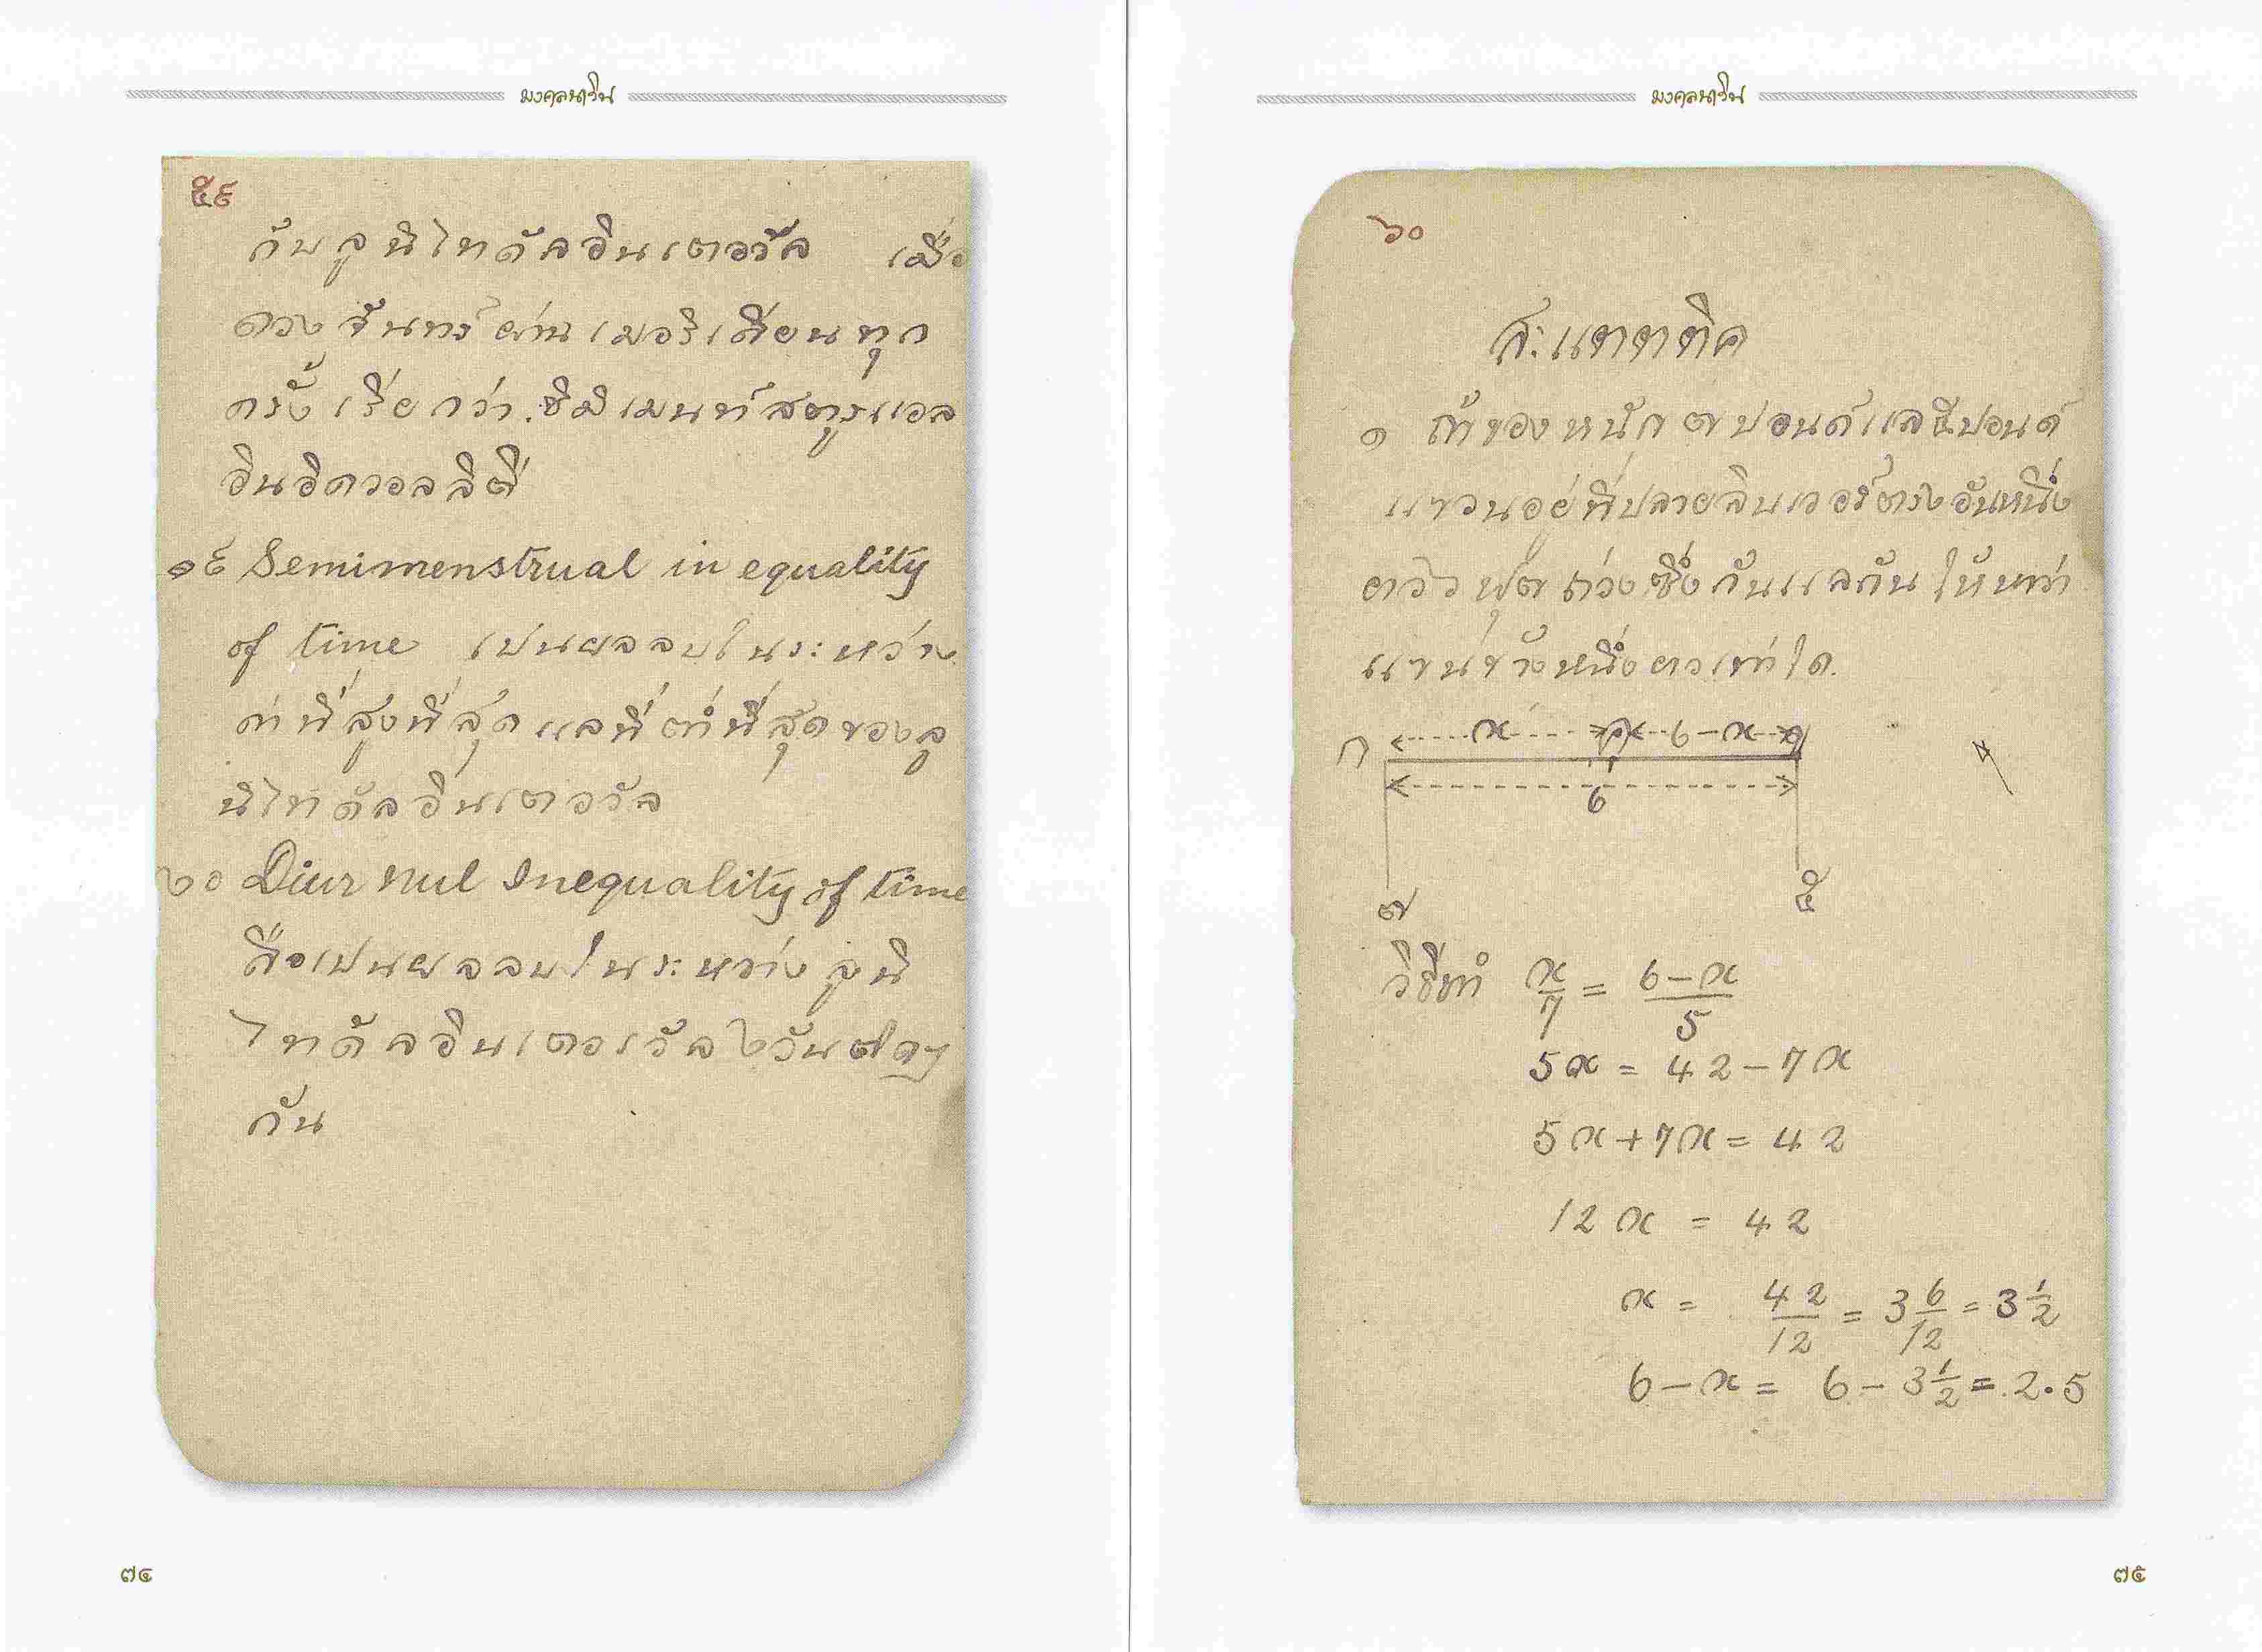 มงคลนาวิน
๕๙
กับลูนิไทดัลอินเตอวัล เมื่อ
ดวงจันทร์ผ่านเมอริเดียนทุก
ครั้งเรียกว่า ซิมิเมนท์สตรูแอล
อินอิควอลลิตี่
๑๙ Semimenstrual in equality
of time เปนผลลบในระหว่าง
ค่าที่สูงที่สุดแลที่ต่ำที่สุดของลู
นิไทดัลอินเตอวัล
๒๐ Diur nul Inequality of time
คือเปนผลลบในระหว่างลูนิ
ไทดัลอินเตอเวัล ๒ วัน
กัน
๗๔
มงคลนาวิน
๖๐
สะแตตติค
๑ ถ้าของหนัก ๗ ปอนด์แล ๕ ปอนด์
แขวนอยู่ที่ปลายลิบเวอร์ตรงอันหนึ่ง
ยาว ๖ ฟุต ถ่วงซึ่งกันแลกัน ให้หาว่า
แขนข้างหนึ่งยาวเท่าใด.
ก x 6-x
6
๗ ๕
วิธีทำ x/7 = 6-x/5
5x = 42-7x
5x+7x = 42
12x = 42
x = 42/12 = 3 6/12 = 3 1/2
6-x = 6-3 1/2 = 2.5
๗๕